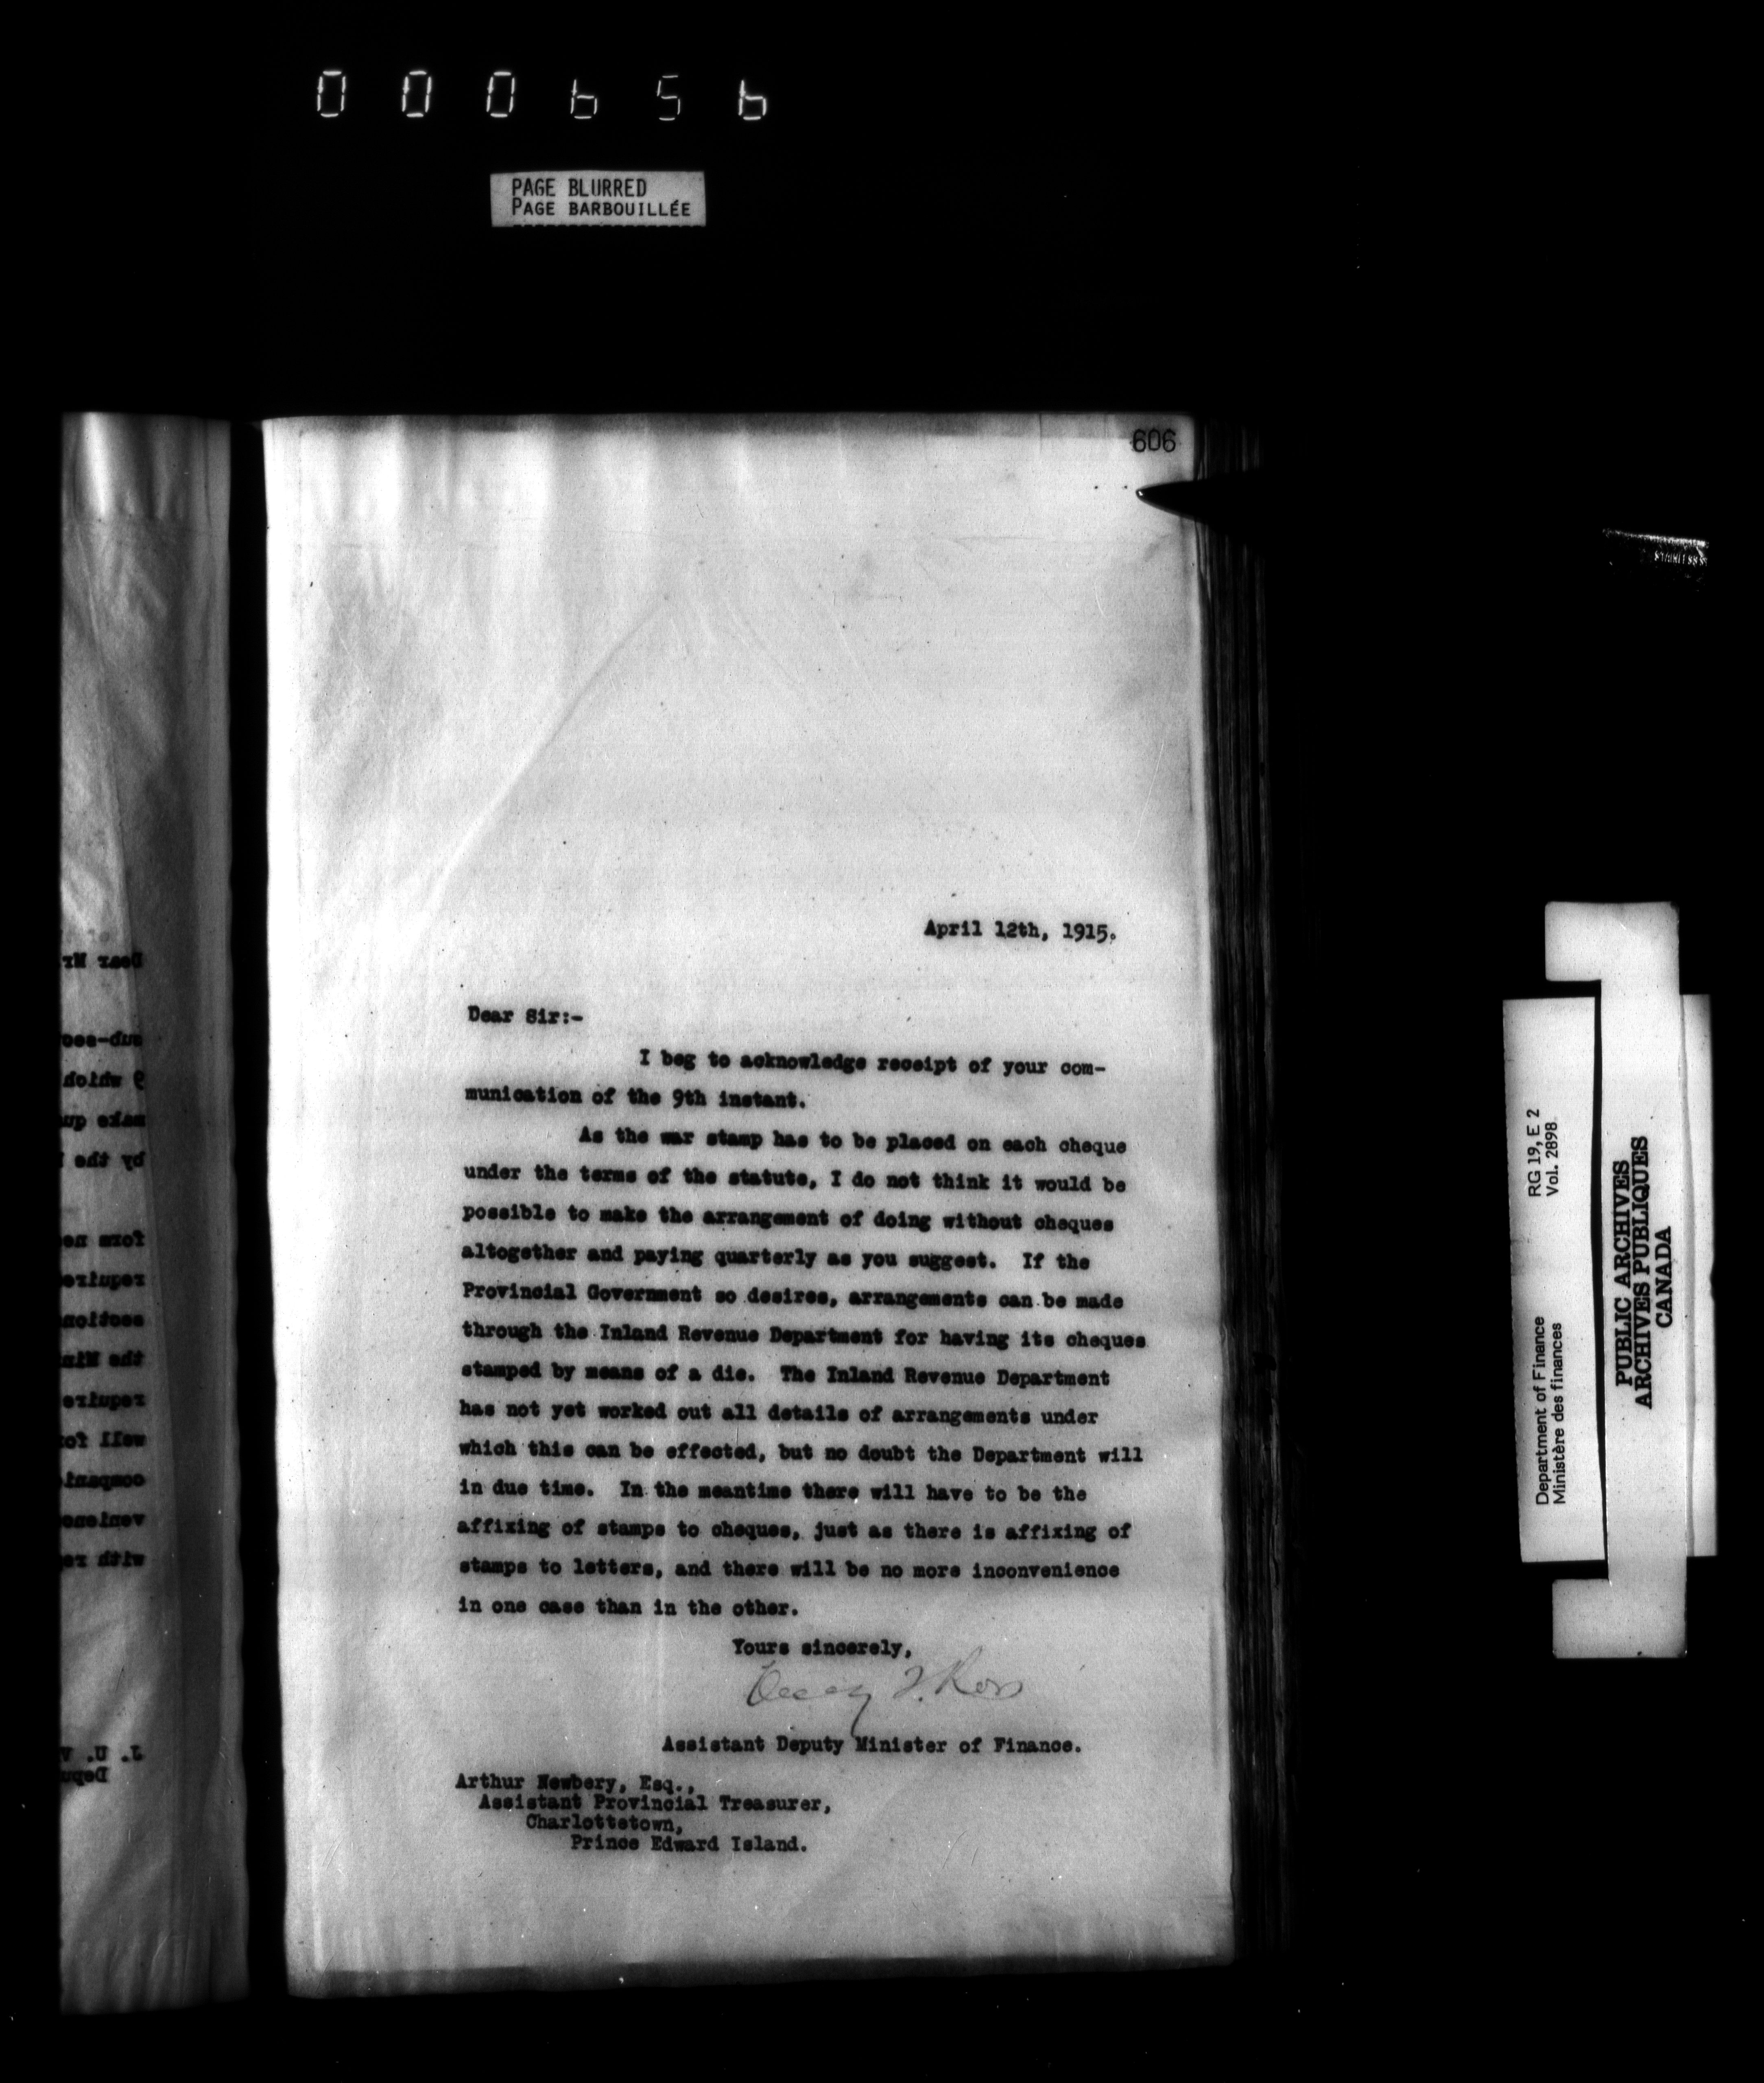 000656
PAGE BLURRED
PAGE BARBOUILLÉE
606
April 12th, 1915.
Dear Sir:-
I beg to acknowledge receipt of your com-
munication of the 9th instant.
As the war stamp has to be placed on each cheque
under the terms of the statute, I do not think it would be
possible to make the arrangement of doing without cheques
altogether and paying quarterly as you suggest. If the
Provincial Government so desires, arrangements can be made
through the Inland Revenue Department for having its cheques
stamped by means of a die. The Inland Revenue Department
has not yet worked out all details of arrangements under
which this can be effected, but no doubt the Department will
in due time. In the meantime there will have to be the
affixing of stamps to cheques, just as there is affixing of
stamps to letters, and there will be no more inconvenience
in one case than in the other.
Yours sincerely,
Assistant Deputy Minister of Finance.
Arthur Newbery, Esq.,
Assistant Provincial Treasurer,
Charlottetown,
Prince Edward Island.
RG 19, E 2
Vol. 2898
Department of Finance
Ministère des finances
PUBLIC ARCHIVES
ARCHIVES PUBLIQUES
CANADA